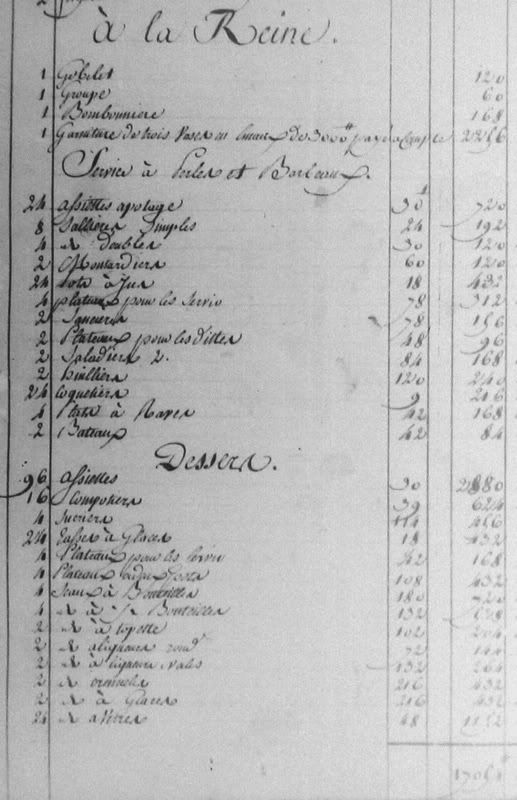 à la Reine.
1 Gobelet 120
1 Groupe 60
1 Bombonniere 168
1 Garniture de trois Vases en de 3000 # paye a Compte 2256
Service à Perles et Barbeaux.
24 assiettes apotage 30 # 720
8 Sallieres Simples 24 192
4 d° doubles 30 120
2 Moutardiers 60 120
24 Pots à Jus 18 432
4 plateaux pour les Servir 78 312
2 Saucieres 78 156
2 Plateaux pour les dittes 48 96
2 Saladiers 2. 84 168
2 huilliers 120 240
24 Coquetiers 9 216
4 Plats à Raves 42 168
2 Bateaux 42 84
Dessera.
96 assiettes 30 2880
16 Compotiers 39 624
4 Sucriers 114 456
24 Tasses à Glaces 18 432
4 Plateaux pour les Servir 42 168
4 Plateaux 108 432
4 Seaux à Bouteilles 180 720
4 d° à 1/2 Bouteilles 132 528
2 d° à topette 102 204
2 d° a liqueurs rond 72 144
2 d° à liqueurs ovales 132 264
2 d° crennelés 216 432
2 d° à Glaces 216 432
24 d° a Verres 48 1152